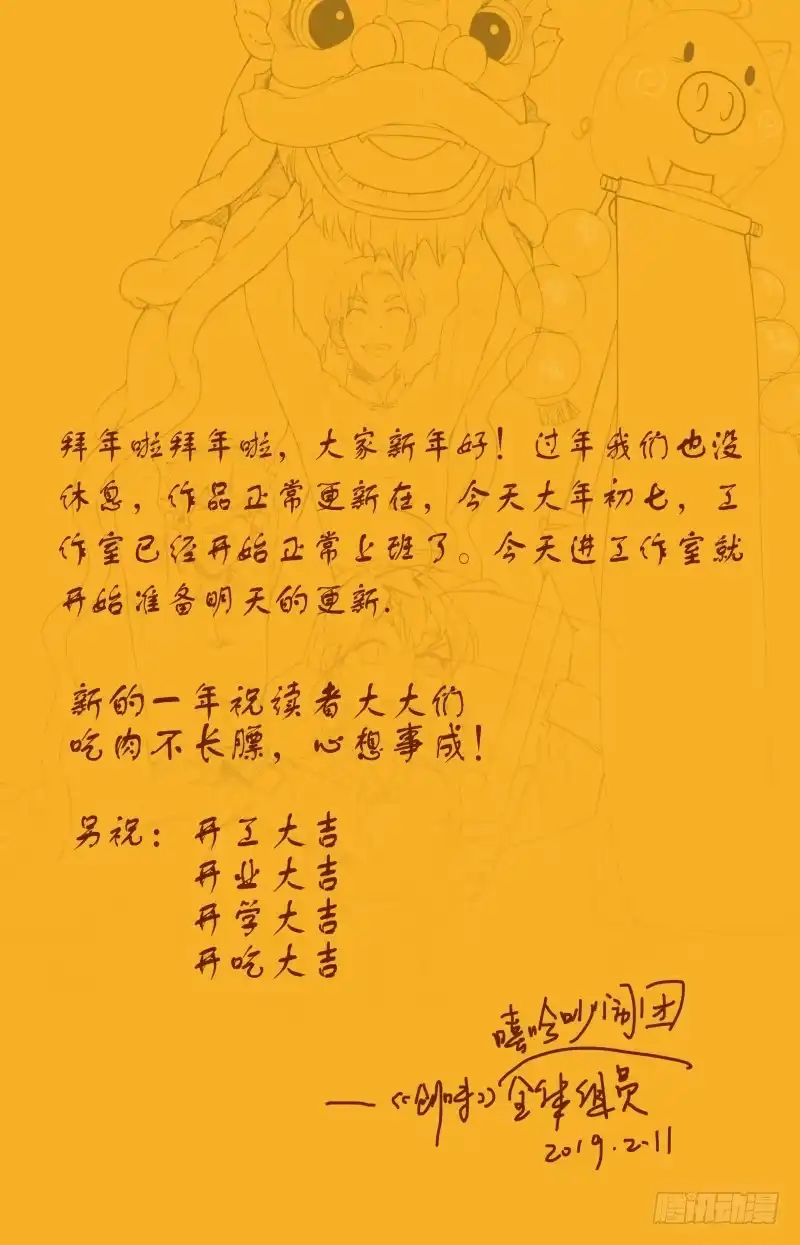 拜年啦拜年啦，大家新年好！过年我们也没
休息，作品正常更新在，今天大年初七，工
作室已经开始正常上班了。今天进工作室就
开始准备明天的更新.
新的一年祝读者大大们
吃肉不长膘，心想事成！
另祝：开工大吉
开业大吉
开学大吉
开吃大吉
嘻哈吵闹团
——《创味》全体组员
2019.2.11
腾讯动漫